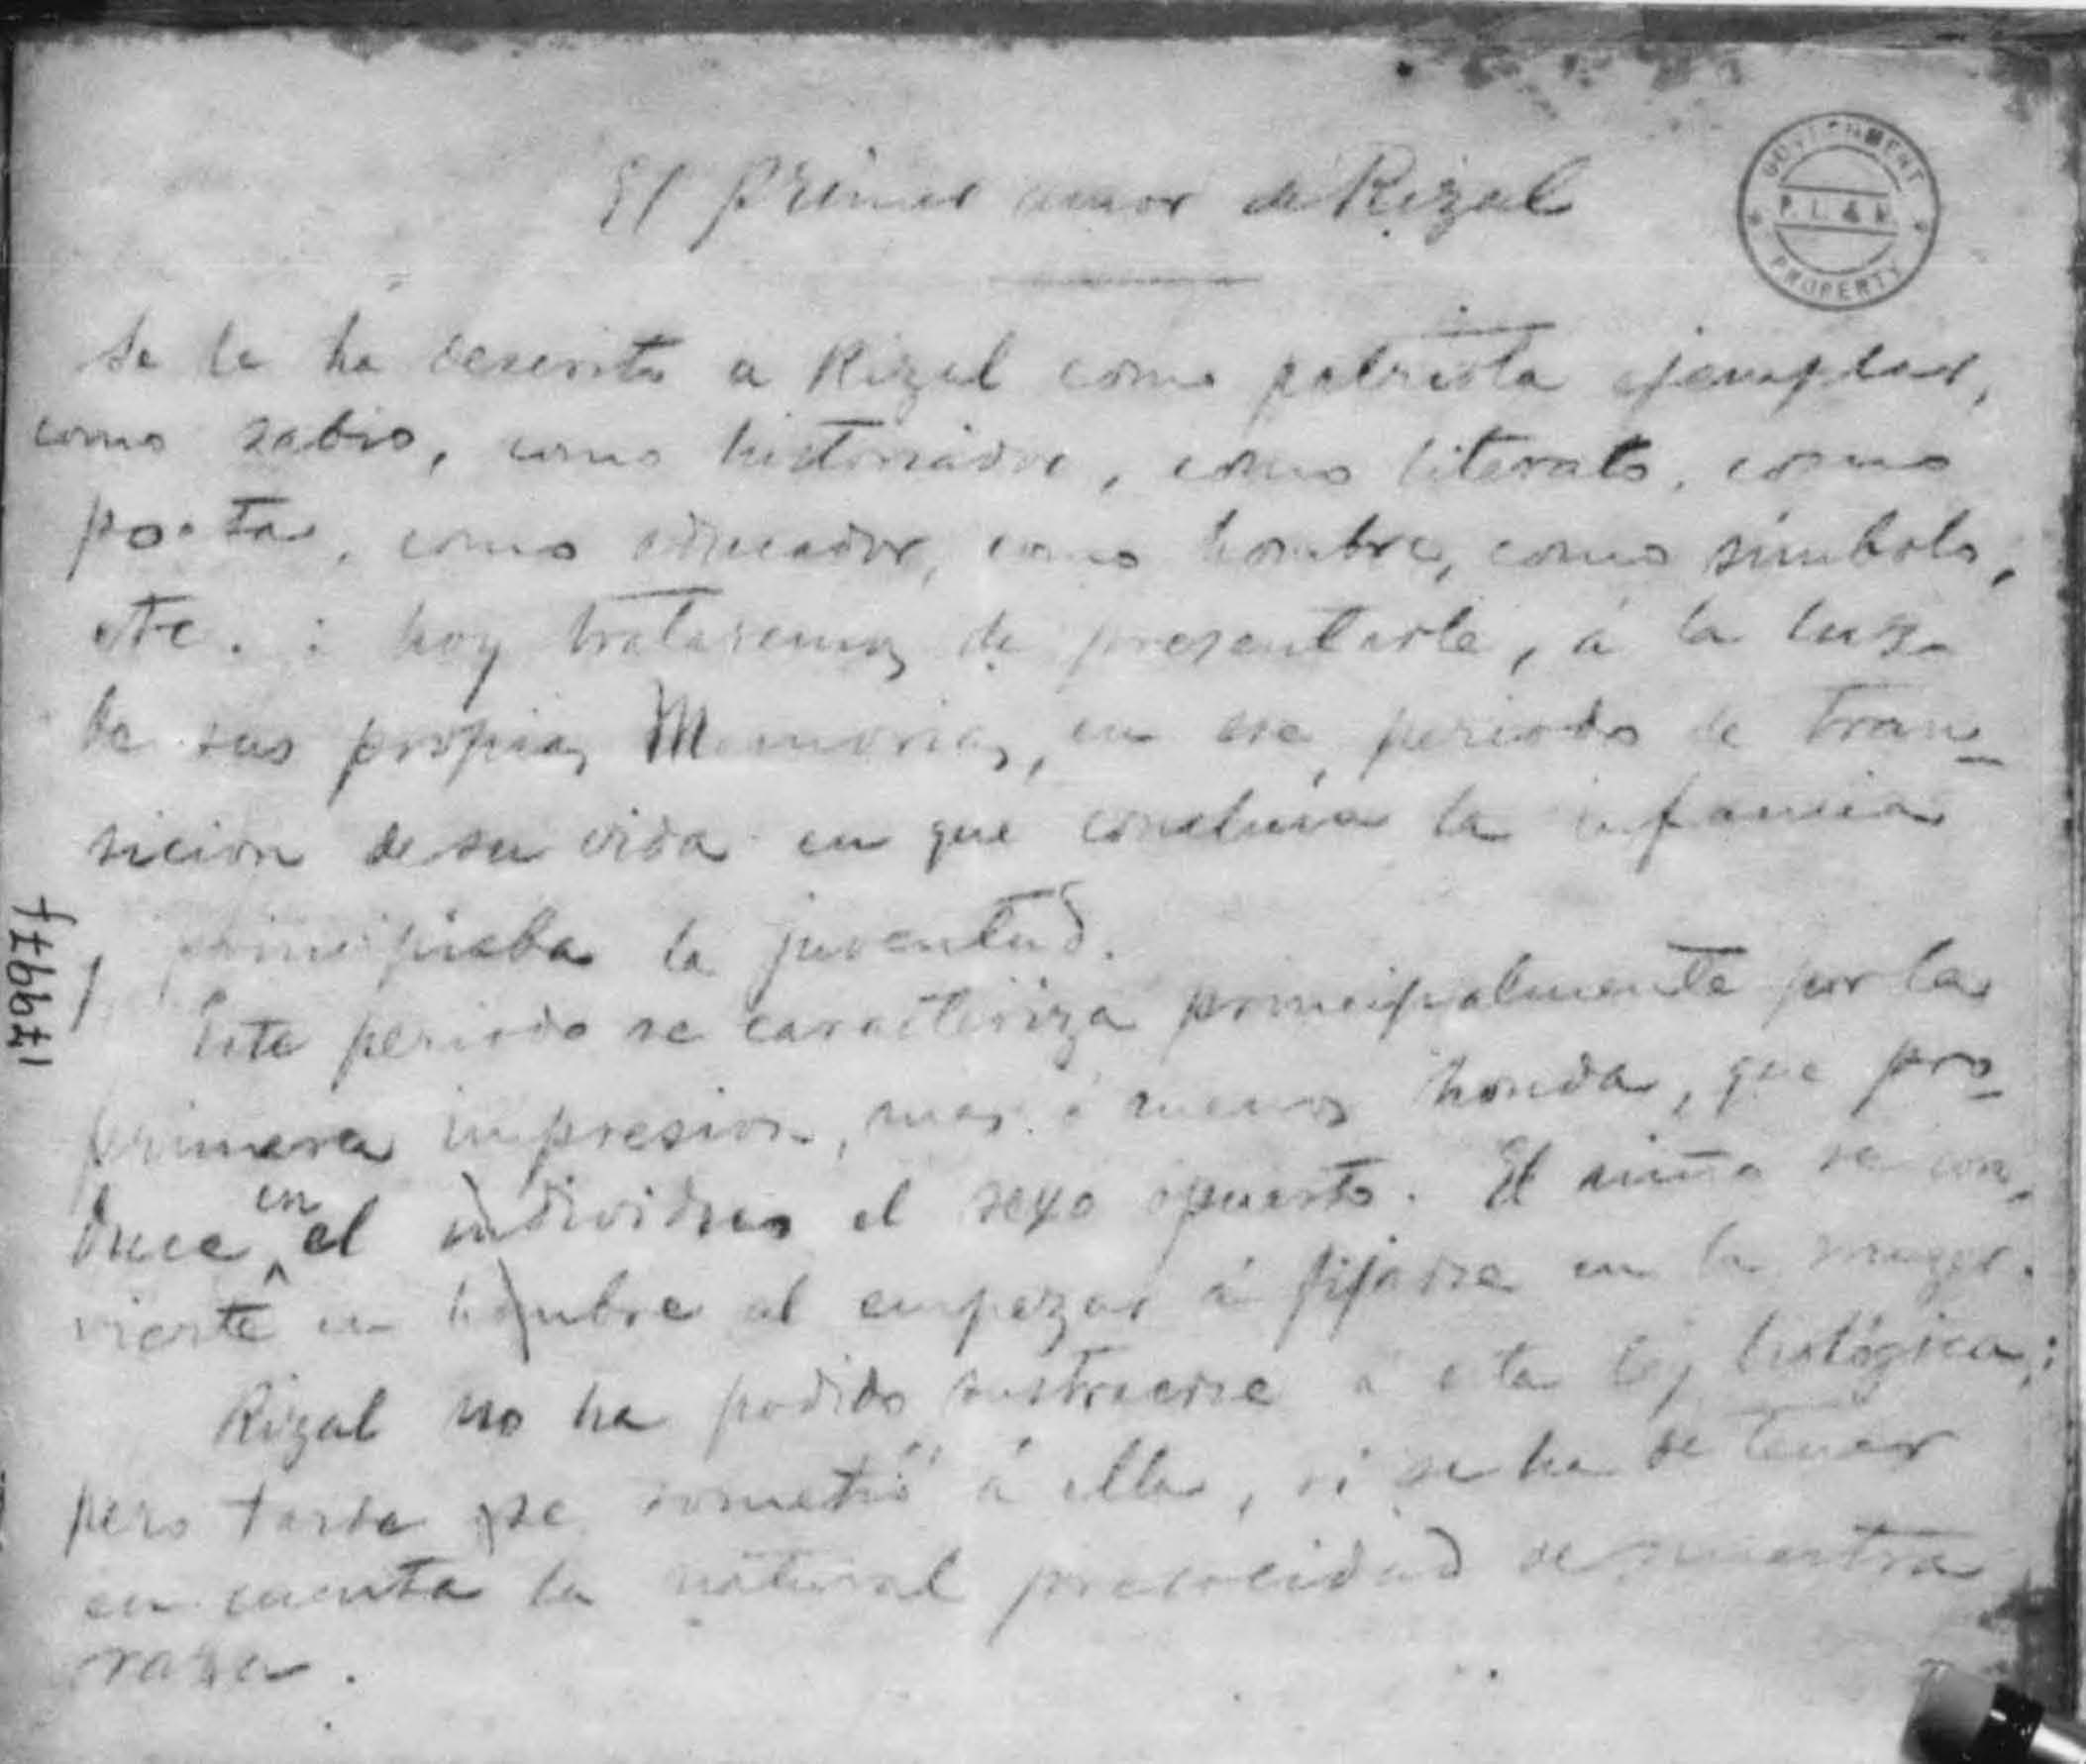 El primer amor de Rizal
GOVERNMENT
P. L. & M.
PROPERTY
Se le ha descrito a Rizal como patriota ejemplar,
como sabio, como historiador, como literato, como
poeta, como educador, como hombre, como símbolo,
etc. : hoy trataremos de presentarle, á la luz
de sus propias Memorias, en ese periodo de tran-
sicion de su vida en que concluia la infancia
y principiaba la juventud.
Este periodo se caracteriza principalmente por la
primera impresion, mas ó menos honda, que pro-
duce en el individuo el sexo opuesto. El niño se con-
vierte en hombre al empezar á fijarse en la muger.
Rizal no ha podido sustraerse á esta ley biológica;
pero tarde se sometió á ella, si se ha de tener
en cuenta la natural precocidad de nuestra
raza.